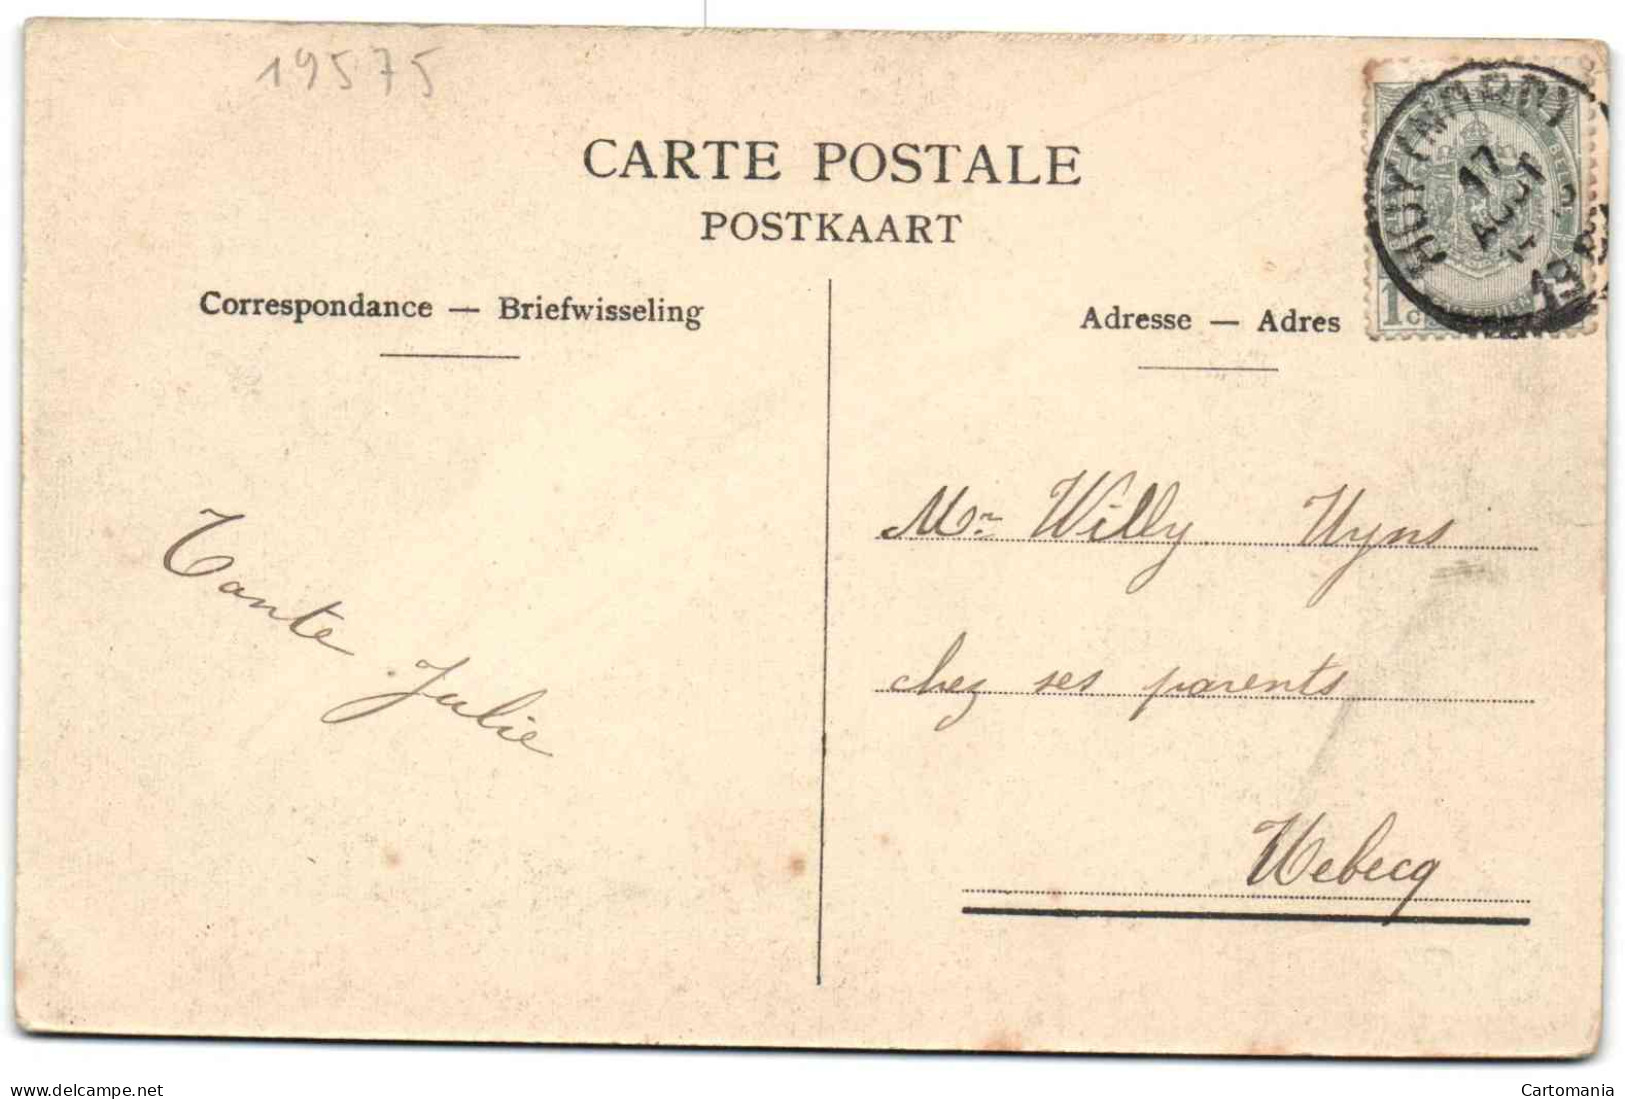 19575
CARTE POSTALE
POSTKAART
Correspondance — Briefwisseling
Adresse — Adres
HUY (NORD)
17
AOUT
1c
Tante Julie
Mr Willy Uyns
chez ses parents
Rebecq
delcampe.net
Cartomania